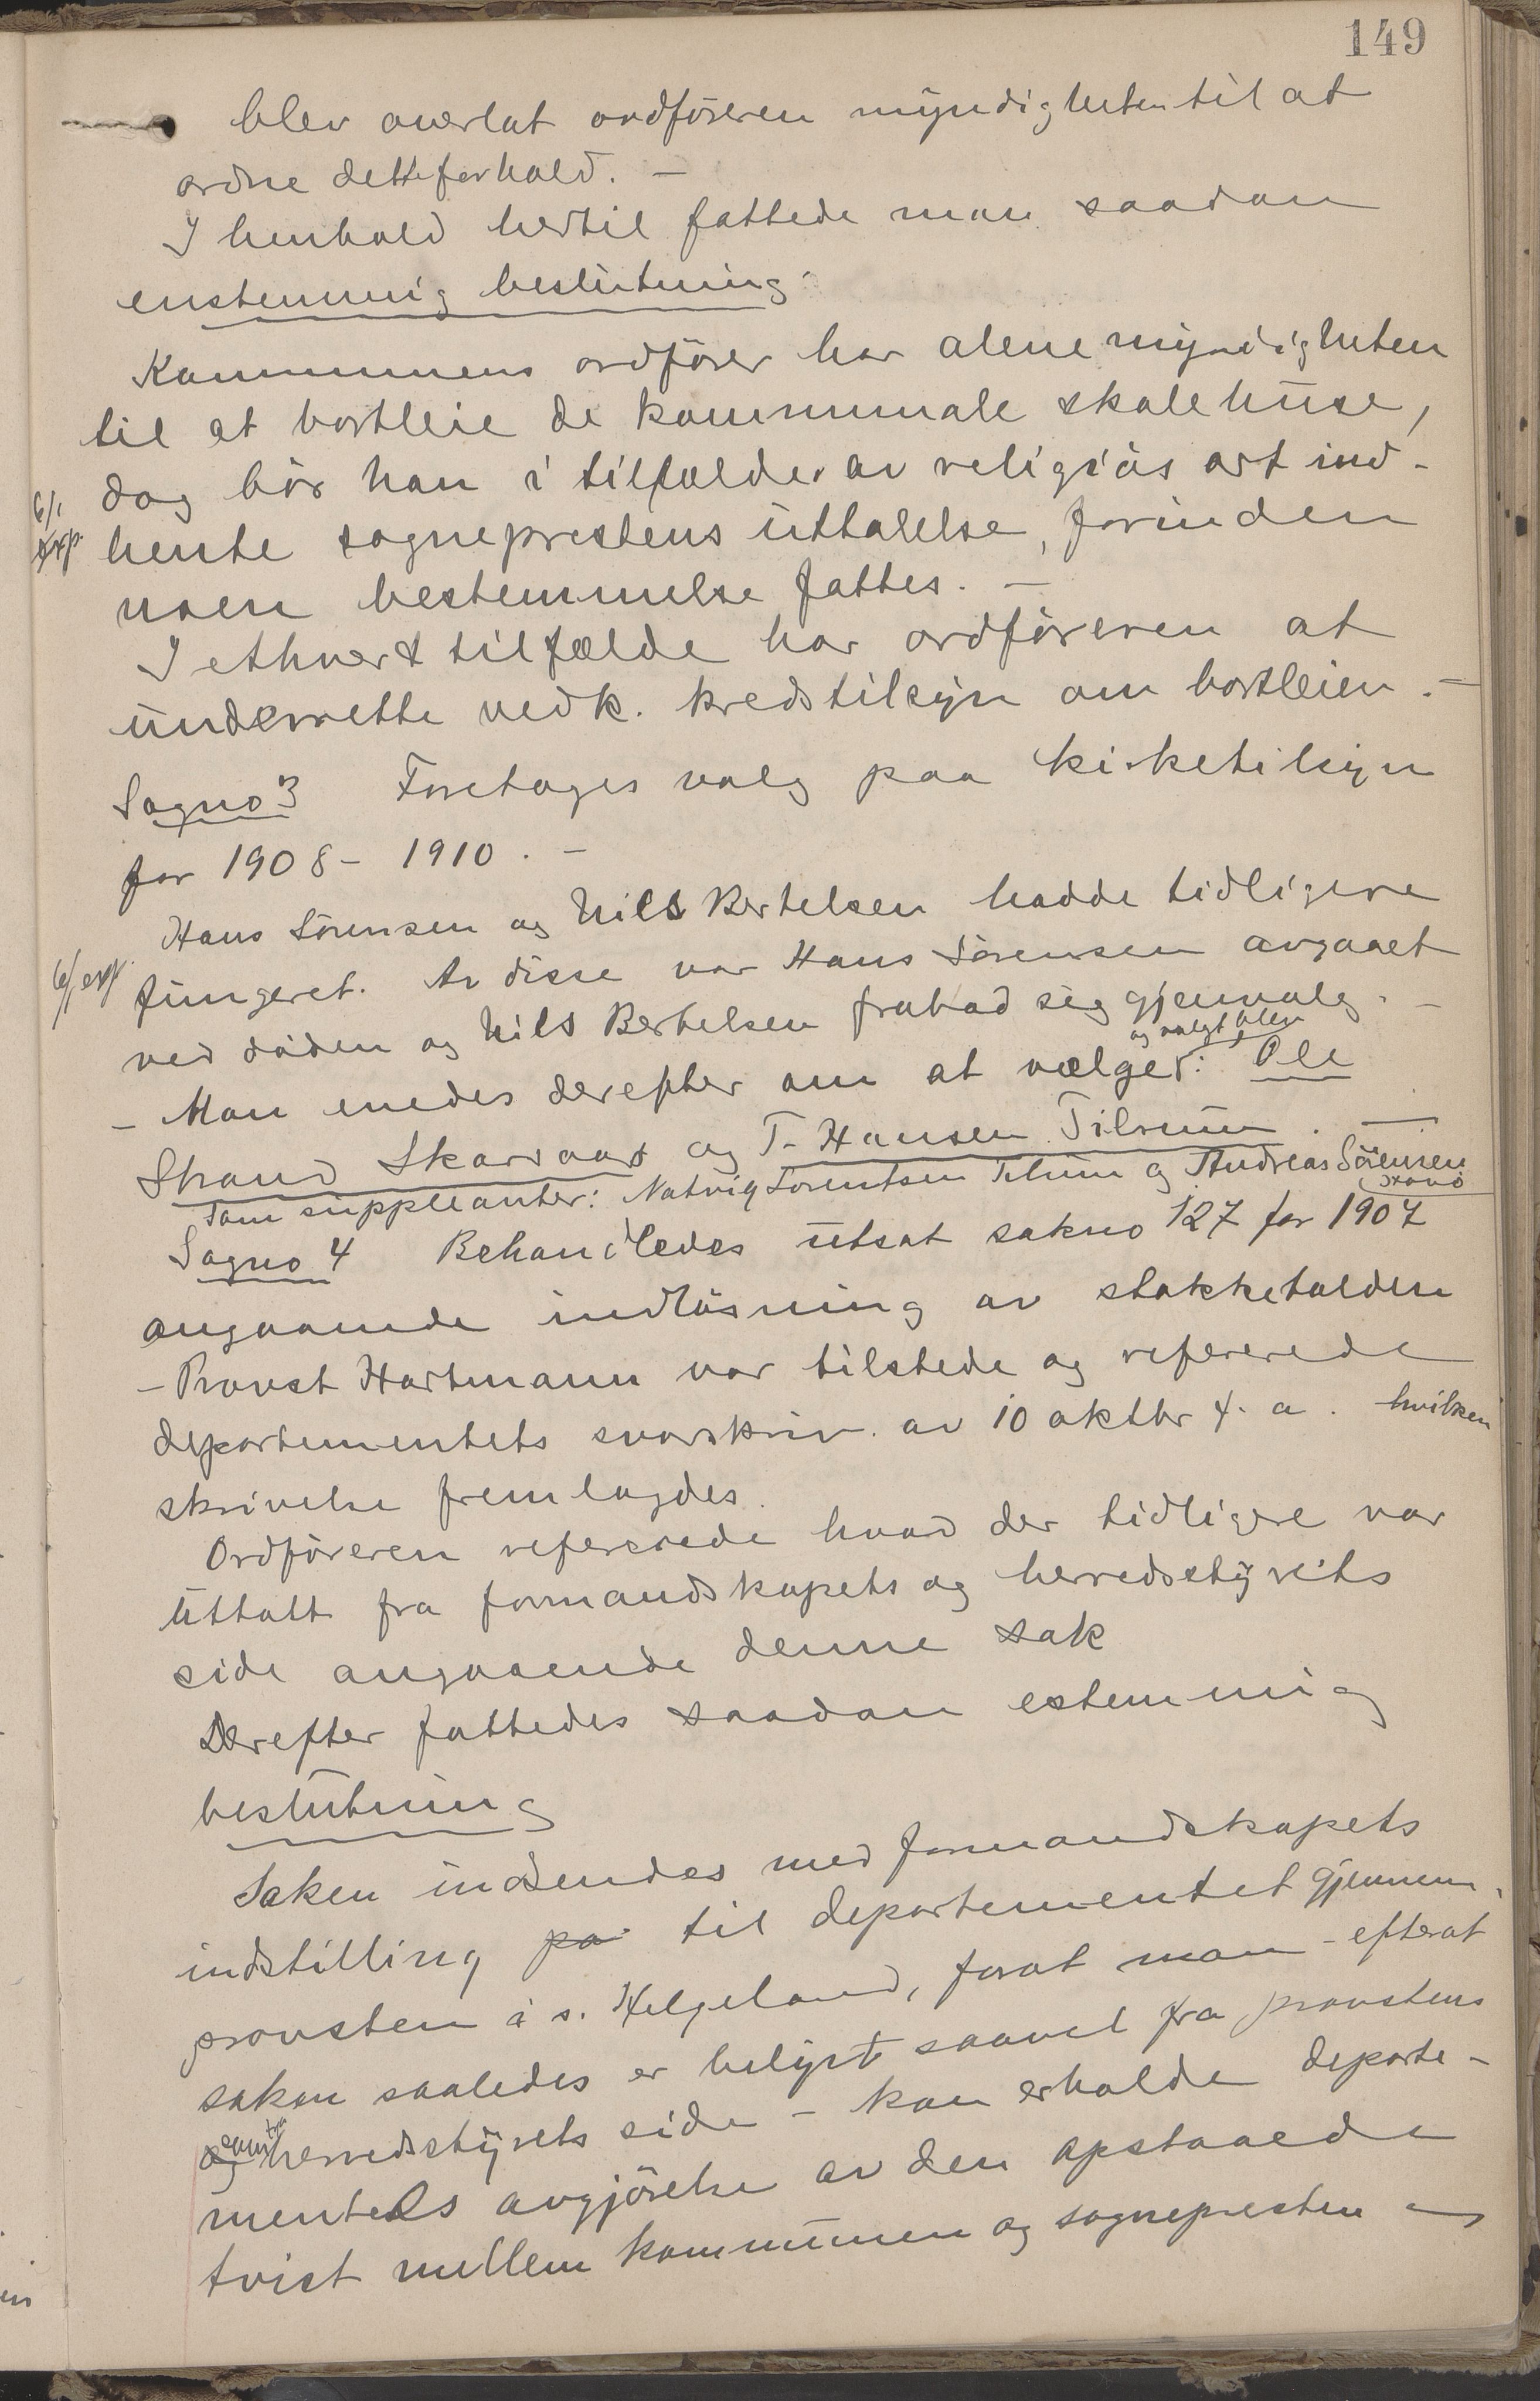 149
blev overlat ordføreren myndigheten til at
ordne dette forhold. —
I henhold hertil fattede man saadan
enstemmig beslutning:
Kommunens ordfører har alene myndigheten
til at bortleie de kommunale skolehuse,
dog bør han i tilfælder av religiøs art ind-
6/1 exp.
hente sogneprestens uttalelse, forinden
noen bestemmelse fattes. —
I ethvert tilfælde har ordføreren at
underrette vedk. kredstilsyn om bortleien. —
Sagno 3 Foretages valg paa kirketilsyn
for 1908 - 1910. —
Hans Sörensen og Nils Bertelsen hadde tidligere
6/1 exp.
fungeret. Av disse var Hans Sörensen avgaaet
ved döden og Nils Bertelsen frabad sig gjenvalg. —
og valgt blev
— Man enedes derefter om at vælge: Ole
Strand Skarsaas og T. Hansen Tilrum. —
Som suppleanter: Natvig Sorentsen Tilrum og Andreas Sörensen
Sagno 4 Behandledes utsat sakno 127 for 1907
angaaende indløsning av stakketolden
— Provst Hartmann var tilstede og refererede
departementets svarskriv. av 10 oktbr f. a. hvilken
skrivelse fremlagdes.
Ordføreren refererede hvad der tidligere var
uttalt fra formandskapets og herredsstyrets
side angaaende denne sak
Derefter fattedes saadan estemmig
beslutning
Saken indsendes med formandskapets
indstilling pa til departementet gjennem
provsten i s. Helgeland, forat man - efterat
saken saaledes er belyst saavel fra provstens
som fra herredsstyrets side - kan erholde departe-
mentets avgjörelse av den opstaaede
tvist mellem kommunen og sognepresten